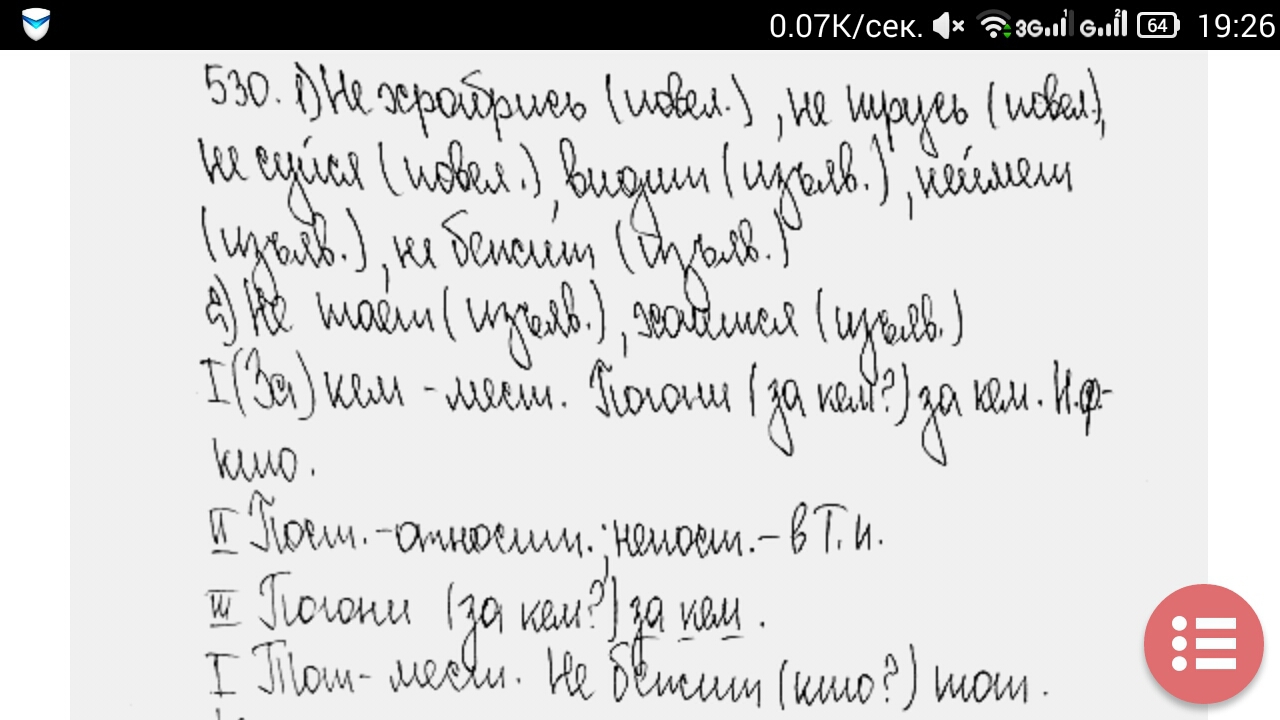 0.07К/сек. 3G 1 G 2 64 19:26
530. 1) Не храбрись (повел.), не трусь (повел.),
не суйся (повел.), видит (изъяв.), неймет
(изъяв.), не бежит (изъяв.)
2) Не тает (изъяв.), хатися (изъяв.)
I (За) кем - мест. Погони (за кем?) за кем. Н.ф.-
кто.
II Пост. - относит.; непост. - в Т.п.
III Погони (за кем?) за кем.
I Тот - мест. Не бежит (кто?) тот.